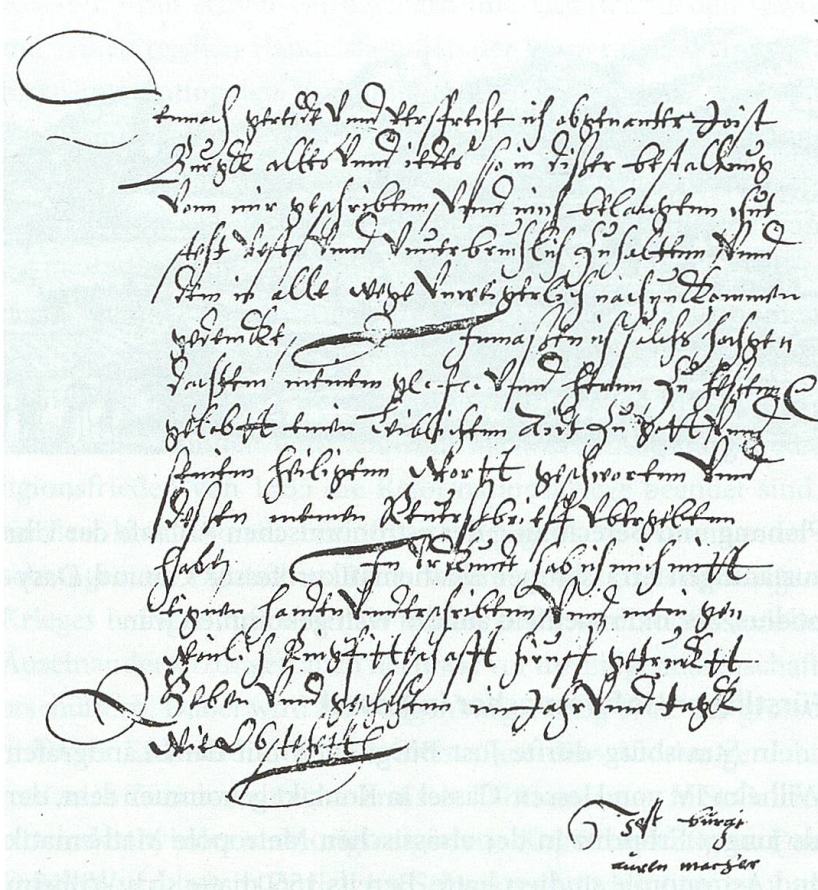 Demnach gerede Vnnd verspreche ich obgenanter Joist
Burgk alles Vnnd iedes so in disser bestallung
Von mir geschriebenn, Vnnd mich belangenn thut
vest Vnnd Vnuerbruchlich Zuhaltenn Vnnd
dem in alle wege Vnweigerlich nachzukommen
gedencke, Inmassen ich solchs hochgen
dachtem meinem g. f. Vnnd herrn Zu
gelobtt einen leiblichen Aidt Zu gott Vnd
seinem heiligenn Wortt geschworen Vnd
dessen meinen Reuersbrieff Vbergeben
habe Zu Vrkundt hab ich mich mitt
eignen handen Vnderschrieben Vnd mein gew
onlich Ringpittschafft getruckt
Geben Vnd geschehenn am Jhar Vnd tagk
wie Obstett
Jost bürgi
auren macher